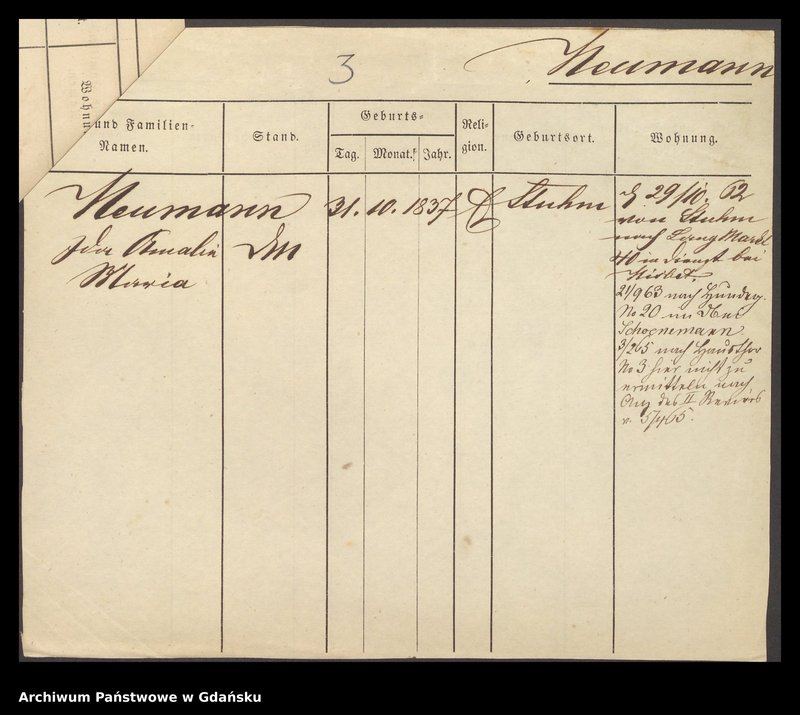 3
Neumann
Wohnun
und Familien-
Namen.
Stand.
Geburts-
Tag.
Monat.
Jahr.
Reli-
gion.
Geburtsort.
Wohnung.
Neumann
Ida Amalie
Maria
31. 10. 1837
Stuhm
29/10. 62
von Stuhm
nach Lang Markt
40 in Dienst bei
21/9 63 nach Hundeg.
No 20 im Die
Schoenemann
3/2 65 nach Hausthor
No 3 hier nicht zu
ermitteln nach
Anz des II Reviers
v. 5/4 65.
Archiwum Państwowe w Gdańsku